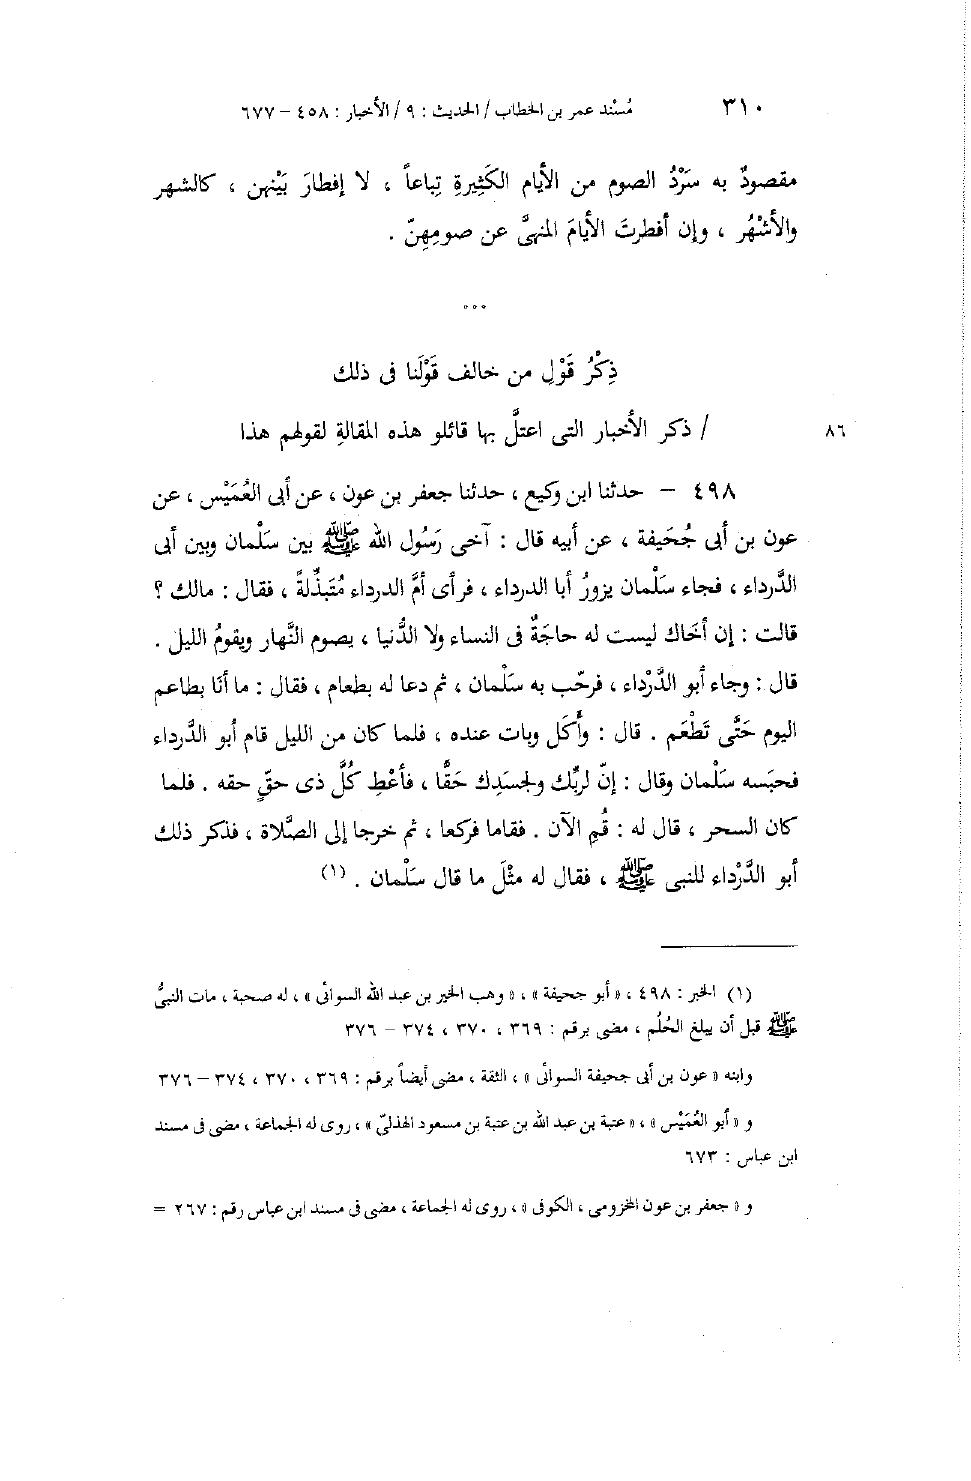 ٣١٠ مُسْند عمر بن الخطاب / الحديث : ٩ / الأخبار : ٤٥٨ – ٦٧٧
مقصودٌ به سَرْدُ الصوم من الأيام الكَثِيرةِ تِباعاً ، لا إفطارَ بَيْنهن ، كالشهر
والأشْهُر ، وإن أفطرتَ الأيامَ المنهىَّ عن صومِهِنّ .
° ° °
ذِكْرُ قَوْلِ من خالف قَوْلَنا فى ذلك
٨٦ / ذكر الأخبار التى اعتلَّ بها قائلو هذه المقالةِ لقولهم هذا
٤٩٨ – حدثنا ابن وكيع ، حدثنا جعفر بن عون ، عن أبى العُمَيْس ، عن
عون بن أبى جُحَيفة ، عن أبيه قال : آخى رَسُول الله ﷺ بين سَلْمان وبين أبى
الدَّرداء ، فجاء سَلْمان يزورُ أبا الدرداء ، فرأى أمَّ الدرداء مُتَبذِّلةً ، فقال : مالك ؟
قالت : إن أخَاك ليست له حاجَةٌ فى النساء ولا الدُّنيا ، يصوم النَّهار ويقومُ الليل .
قال : وجاء أبو الدَّرْداء ، فرحّب به سَلْمان ، ثم دعا له بطعام ، فقال : ما أنَا بطاعم
اليوم حَتَّى تَطْعَم . قال : وأَكَل وبات عنده ، فلما كان من الليل قام أبو الدَّرداء
فحبَسه سَلْمان وقال : إنّ لربِّك ولجسَدِك حَقًّا ، فأعْطِ كُلَّ ذى حقٍّ حقه . فلما
كان السحر ، قال له : قُمِ الآن . فقاما فركعا ، ثم خرجا إلى الصَّلاة ، فذكر ذلك
أبو الدَّرْداء للنبى ﷺ ، فقال له مثْلَ ما قال سَلْمان . (١)
(١) الخبر : ٤٩٨ ، « أبو جحيفة » ، « وهب الخير بن عبد الله السوائى » ، له صحبة ، مات النبىُّ
ﷺ قبل أن يبلغ الحُلُم ، مضى برقم : ٣٦٩ ، ٣٧٠ ، ٣٧٤ – ٣٧٦
وابنه « عون بن أبى جحيفة السوائى » ، الثقة ، مضى أيضاً برقم : ٣٦٩ ، ٣٧٠ ، ٣٧٤ – ٣٧٦
و « أبو العُمَيْس » ، « عتبة بن عبد الله بن عتبة بن مسعود الهذلىّ » ، روى له الجماعة ، مضى فى مسند
ابن عباس : ٦٧٣
و « جعفر بن عون المخزومى ، الكوفى » ، روى له الجماعة ، مضى فى مسند ابن عباس رقم : ٢٦٧ =